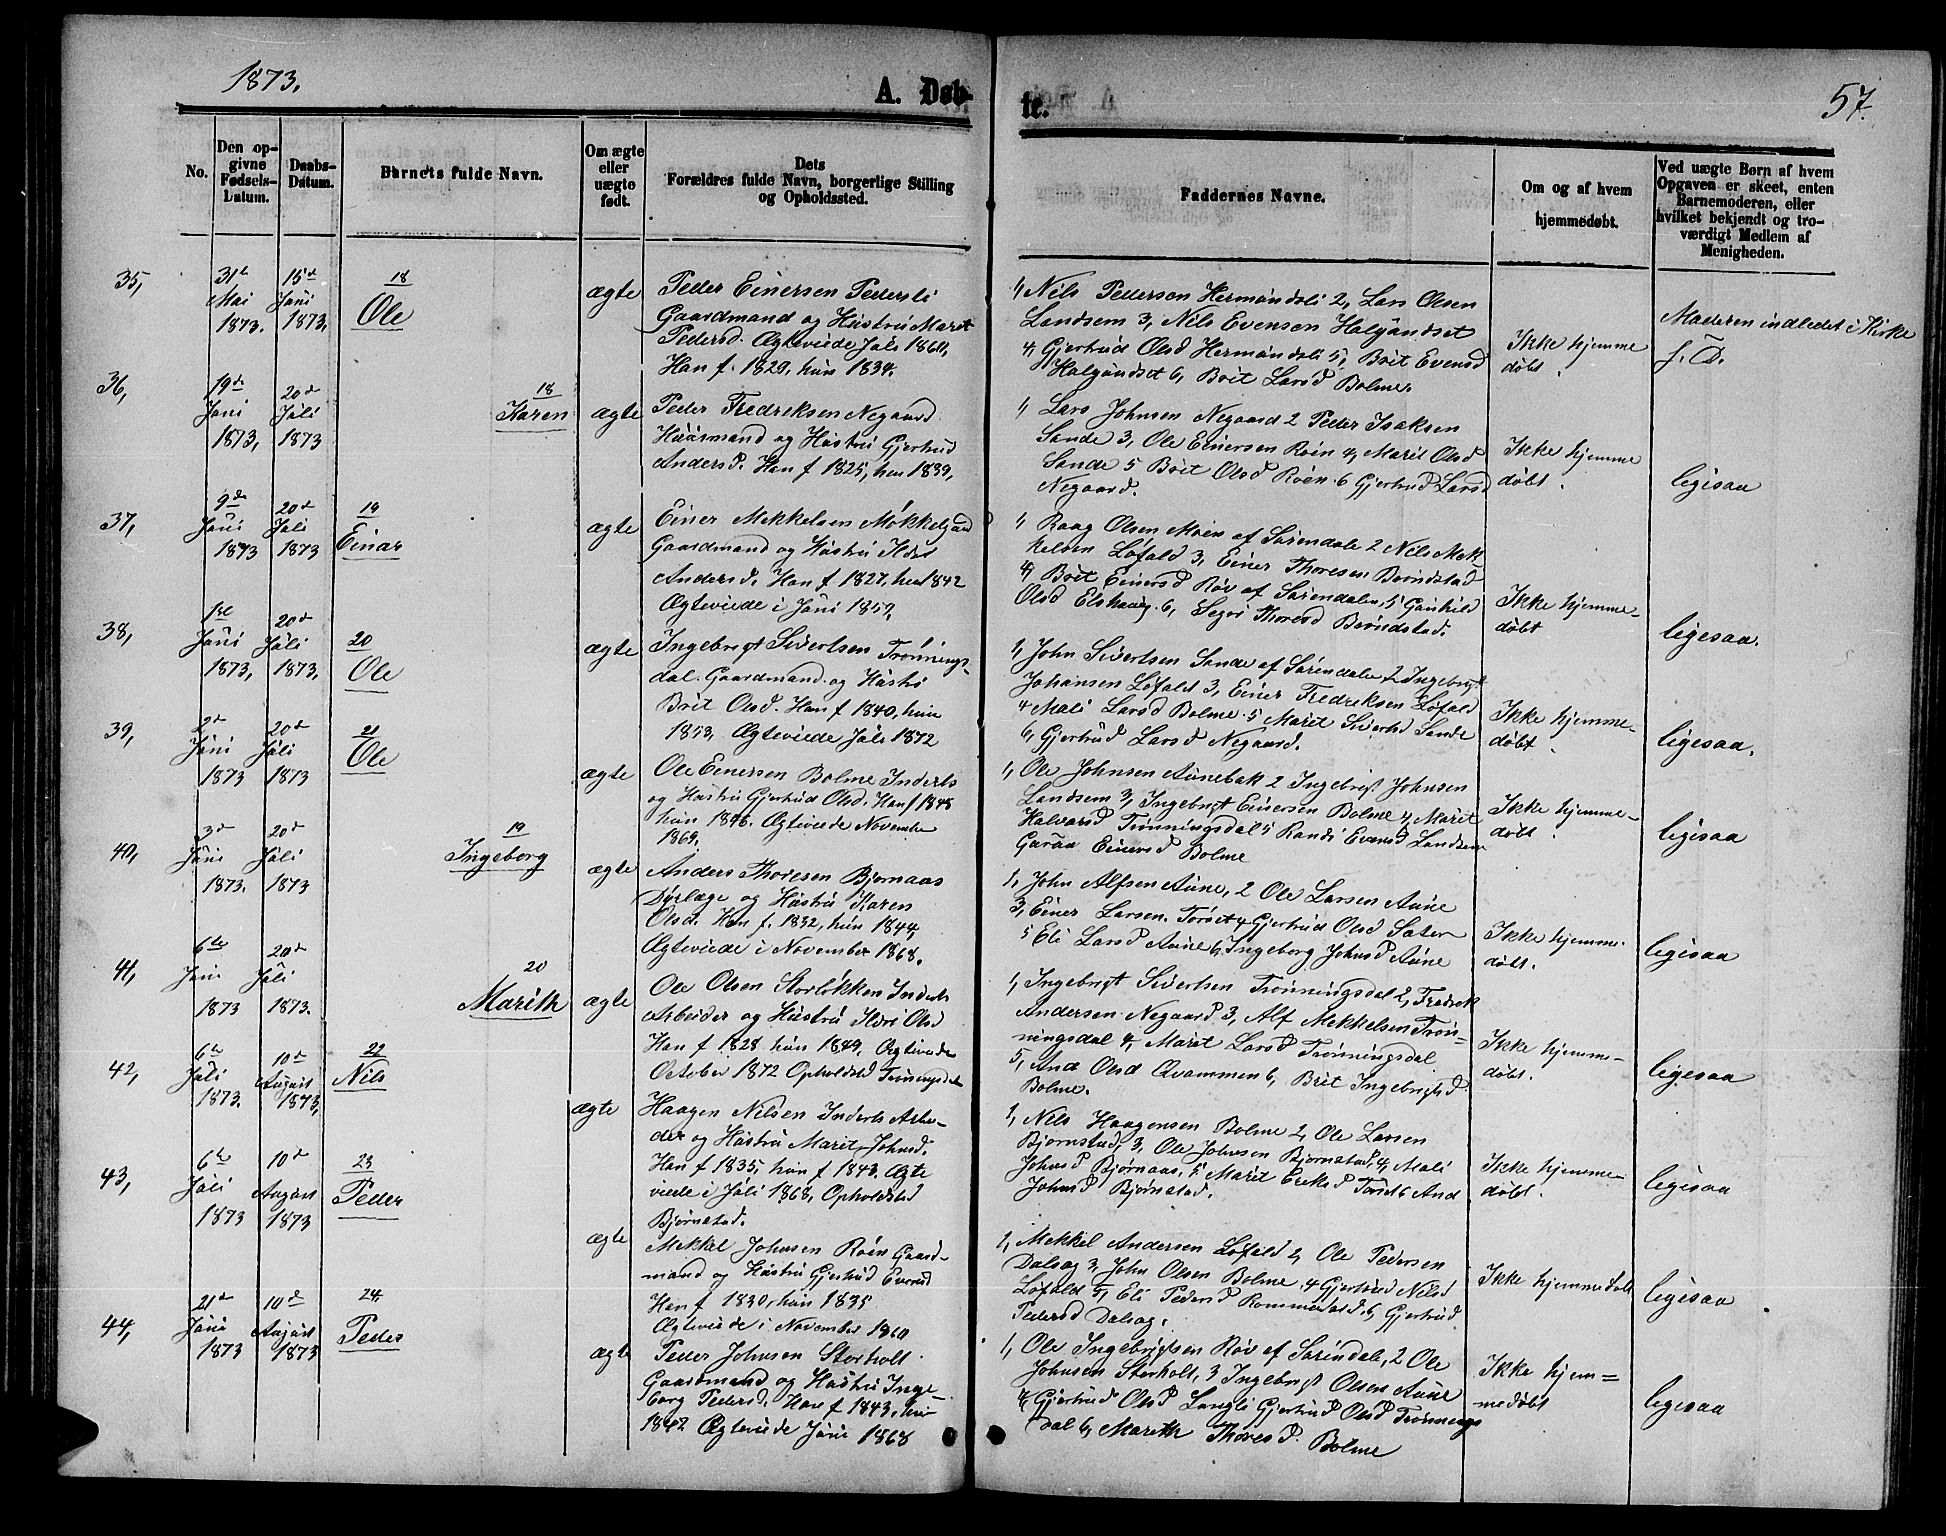 1873.
A. Døb-
te.
57.
No.
Den op-
givne
Fødsels-
Datum.
Daabs-
Datum.
Barnets fulde Navn.
Om ægte
eller
uægte
født.
Dets
Forældres fulde Navn, borgerlige Stilling
og Opholdssted.
Faddernes Navne.
Om og af hvem
hjemmedøbt.
Ved uægte Børn af hvem
Opgaven er skeet, enten
Barnemoderen, eller
hvilket bekjendt og tro-
værdigt Medlem af
Menigheden.
35,
31te
Mai
1873.
15de
Juni
1873,
18
Ole
ægte
Peder Einersen Pedersli
Gaardmand og Hustru Marit
Pedersd. Ægteviede Juli 1860,
Han f. 1829, hun 1834.
1, Nils Pedersen Hermundsli 2, Lars Olsen
Landsem 3, Nils Evensen Halgundset
4, Gjertrud Olsd Hermundsli 5, Brit Evensd
Halgundset 6, Brit Larsd Bolme.
Ikke hjemme
døbt.
Moderen indledet i Kirke
f. D.
36,
19de
Juni
1873,
20de
Juli
1873
18
Karen
ægte
Peder Fredriksen Negaard
Huusmand og Hustru Gjertrud
Andersd. Han f 1825, hun 1839,
1, Lars Johnsen Negaard 2 Peder Isaksen
Sande 3, Ole Einersen Røen 4, Marit Olsd
Sande 5 Brit Olsd Røen 6 Gjertrud Larsd
Negaard.
Ikke hjemme
døbt.
ligesaa
37,
9de
Juni
1873
20de
Juli
1873
19
Einar
ægte
Einer Mekkelsen Møkkelgard
Gaardmand og Hustru Ildri
Andersd. Han f 1827, hun 1842
Ægteviede i Juni 1859,
1, Raag Olsen Moen af Surendalen 2 Nils Mek-
kelsen Løfald 3, Einer Thoresen Brøndstad
4, Brit Einersd Røv af Surendalen, 5 Gunhild
Olsd Elshaug 6, Segri Thoresd Brøndstad.
Ikke hjemme-
døbt
ligesaa.
38,
1ste
Juni
1873,
20de
Juli
1873,
20
Ole
ægte
Ingebrigt Sivertsen Trønnings-
dal. Gaardmand og Hustru
Brit Olsd. Han f 1840, hun
1853, Ægteviede, Juli 1872
1, John Sivertsen Sande af Surendalen, 2 Ingebrigt
Johansen Løfald 3, Einer Fredriksen Løfald
4 Mali Larsd Bolme. 5 Marit Sivertsd Sande
6, Gjertrud Larsd Negaard.
Ikke hjemme-
døbt.
ligesaa.
39,
2de
Juni
1873
20de
Juli
1873
21
Ole
ægte
Ole Einersen Bolme Inderts
og Hustru Gjertrud Olsd. Han f 1848
hun 1846. Ægteviede November
1869,
1, Ole Johnsen Aunebak 2 Ingebrigt Johnsen
Landsem 3, Ingebrigt Einersen Bolme 4, Marit
Halvarsd Trønningsdal 5 Randi Evensd Landsem
Guraa Einersd Bolme
Ikke hjemme-
døbt.
ligesaa
40,
3de
Juni
1873.
20de
Juli
1873
19
Ingeborg
ægte
Anders Thoresen Bjørnaas
Dyrlæge og Hustru Karen
Olsd. Han f. 1832, hun 1844,
Ægteviede i November 1868.
1, John Alfsen Aune, 2 Ole Larsen Aune
3, Einer Larsen Torset 4 Gjertrud Olsd Sæter
5 Eli Larsd Aune 6, Ingeborg Johnsd Aune
Ikke hjemme-
døbt.
ligesaa
41,
6te
Juni
1873
20de
Juli
1873.
20
Marith
ægte
Ole Olsen Storløkken Inderts
Arbeider og Hustru Ildri Olsd
Han f 1828 hun 1849, Ægteviede
October 1872 Opholdsted Trøningsdal
1, Ingebrigt Sivertsen Trønningsdal 2, Fredrik
Andersen Negaard 3, Alf Mekkelsen Trøn-
ningsdal 4, Marit Larsd Trønningsdal
5, And Olsd Qvammen 6, Brit Ingebrigtsd
Bolme.
Ikke hjemme-
døbt.
ligesaa
42,
6te
Juli
1873.
10de
August
1873,
22
Nils
ægte
Haagen Nilsen Inderts Arbei-
der og Hustru Marit Johnsd.
Han f 1835, hun f 1843. Ægte
viede i Juli 1868, Opholdsted
Bjørnstad.
1, Nils Haagensen Bolme 2, Ole Larsen
Bjørnstad, 3, Ole Johnsen Bjørnstad, 4, Mali
Johnsd Bjørnaas, 5 Marit Eriksd Torset 6 And
Johnsd Bjørnstad.
Ikke hjemme-
døbt.
ligesaa
43,
6te
Juli
1873
10de
August
1873
23
Peder
ægte
Mekkel Johnsen Røen Gaard-
mand og Hustru Gjertrud Evensd
Han f 1830, hun 1835
Ægteviede i November 1860
1, Mekkel Andersen Løfald 2, Ole Pedersen
Dalsøg 3, John Olsen Bolme, 4 Gjertrud Nilsd
Løfald 5, Eli Pedersd Rommundstad 6, Gjertrud
Pedersd Dalsøg.
Ikke hjemmedøbt
ligesaa
44,
21de
Juni
1873
10de
August
1873
24.
Peder
ægte
Peder Johnsen Storholt
Gaardmand og Hustru Inge-
borg Pedersd. Han f 1843, hun
1842 Ægteviede Juni 1868
1, Ole Ingebrigtsen Røv af Surendale, 2 Ole
Johnsen Storholt, 3 Ingebrigt Olsen Aune
4, Gjertrud Olsd Langli Gjertrud Olsd Trønnings
dal 6, Marith Thoresd Bolme
Ikke hjem=
medøbt
ligesaa